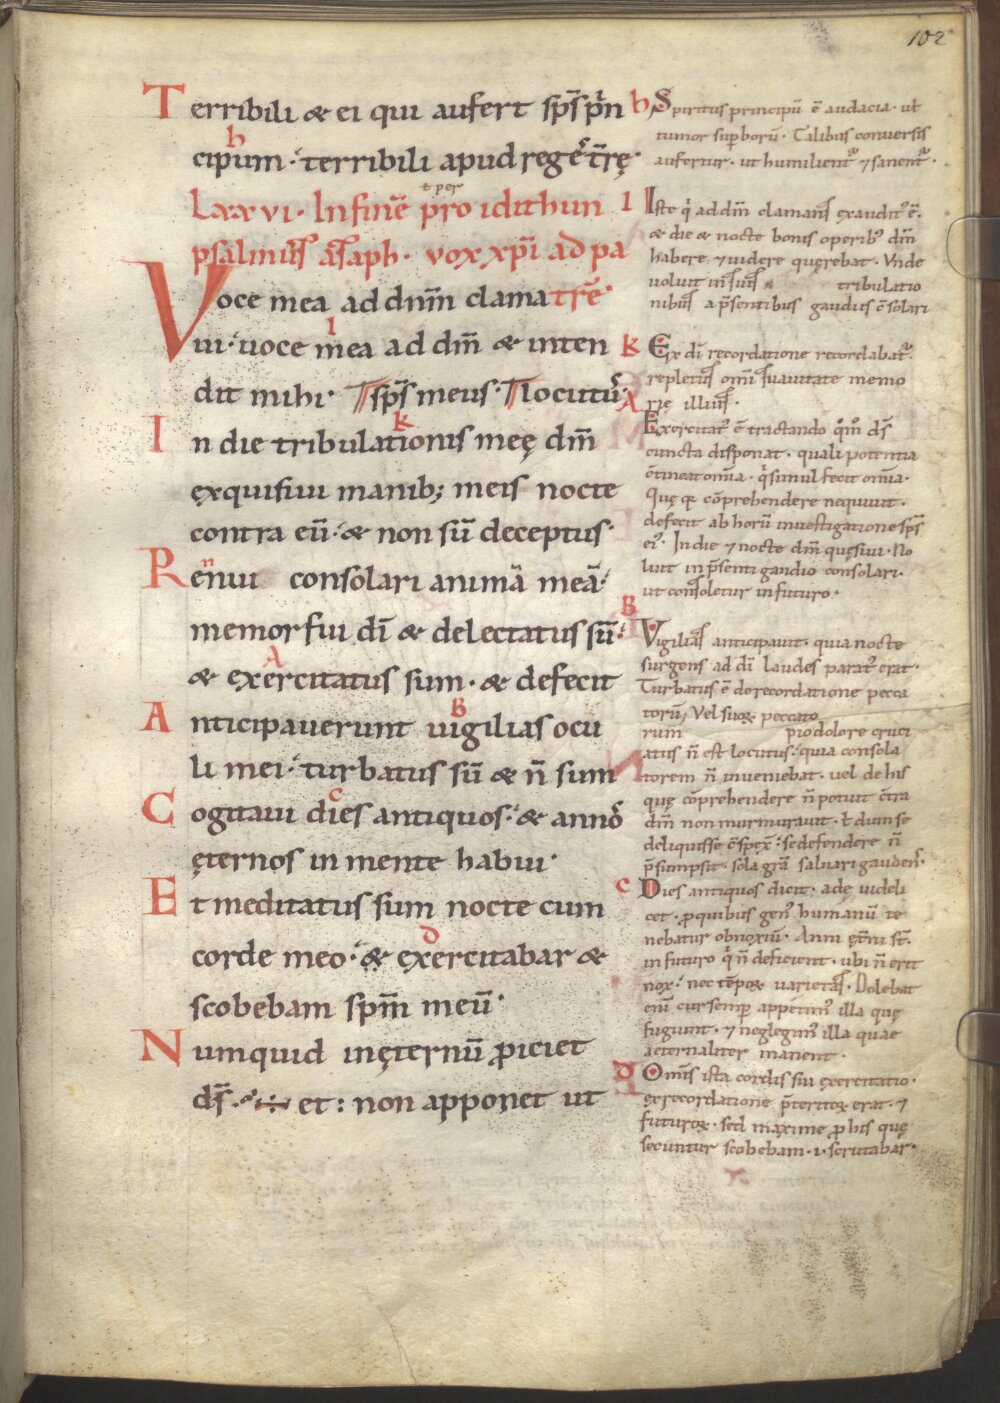 102
Terribili & ei qui aufert sp̄s prin
cipum· terribili apud regē t̄rę·
Lxxvi· In finē pro idithun
psalmus asaph· vox xp̄i ad pa
Voce mea ad dnm̄ clama trē·
ui· uoce mea ad dm̄ & inten
dit mihi· sp̄s meus· locutu᷒
In die tribulationis meę dm̄
ęxquisiui manib; meis nocte
contra eū· & non sū deceptus·
Rennui consolari animā meā·
memor fui dī & delectatus sū·
& exercitatus sum· & defecit
Anticipauerunt uigilias ocu
li mei· turbatus sū & n̄ sum
Cogitaui dies antiquos· & anno᷒
ęternos in mente habui·
Et meditatus sum nocte cum
corde meo· & exercitabar &
scobebam spm̄ meū·
Numquid inęternū proiciet
ds̄ et: non apponet ut
h Spiritus principū ē audacia· ut
tumor superborū· Talibus conuersis
aufertur· ut humilient᷑ ⁊ sanent᷑·
I Iste q̇ ad dm̄ clamans ęxaudit᷒ ē·
& die & nocte bonis operib᷒ dm̄
habere ⁊ uidere quęrebat· Vnde
uoluit in suis tribulatio
nibus a p̄sentibus gaudiis c̄solari
K Ex dī recordatione recordabat᷑·
repletus omi suauitate memo
rie illius·
A Exercitat᷒ ē tractando qm̊ ds̄
cuncta disponat· quali potentia
c̄tineat om̄ia· q̇ simul fecit om̄ia·
Quę qꝛ cōprehendere nequiuit·
defecit ab horū inuestigatione sp̄s
ei᷒· In die ⁊ nocte dm̄ quęsiui· No
luit in p̄senti gaudio consolari·
ut consoletur in futuro·
B Vigilias anticipauit· quia nocte
surgens ad dī laudes parat᷒ erat·
Turbatus ē de recordatione pecca
torū, Vel suoꝝ peccato
rum pio dolore cruci
atus n̄ est locutus· quia consola
torem n̄ inueniebat· uel de his
quę cōprehendere n̄ potuit c̄tra
dm̄ non murmurauit· ł dum se
deliquisse c̄spęx̄· se defendere n̄
p̄sumpsit· sola grā saluari gaudens·
C Dies antiquos dicit· adę uideli
cet· pro quibus gen᷒ humanū te
nebatur obnoxiū· Anni ęt̄ni st̄·
in futuro q̇ n̄ deficient· ubi n̄ erit
nox· nec tēpoꝝ uarietas· Dolebat
enī cur semp̄ appetim᷒ illa quę
fugiunt· ⁊ neglegim᷒ illa quae
aeternaliter manent·
d Omis ista cordis sui exercitatio·
ex recordatione p̄teritoꝝ erat· ⁊
futuroꝝ· sed maxime pro his quę
secuntur scobebam· i· scrutabar·